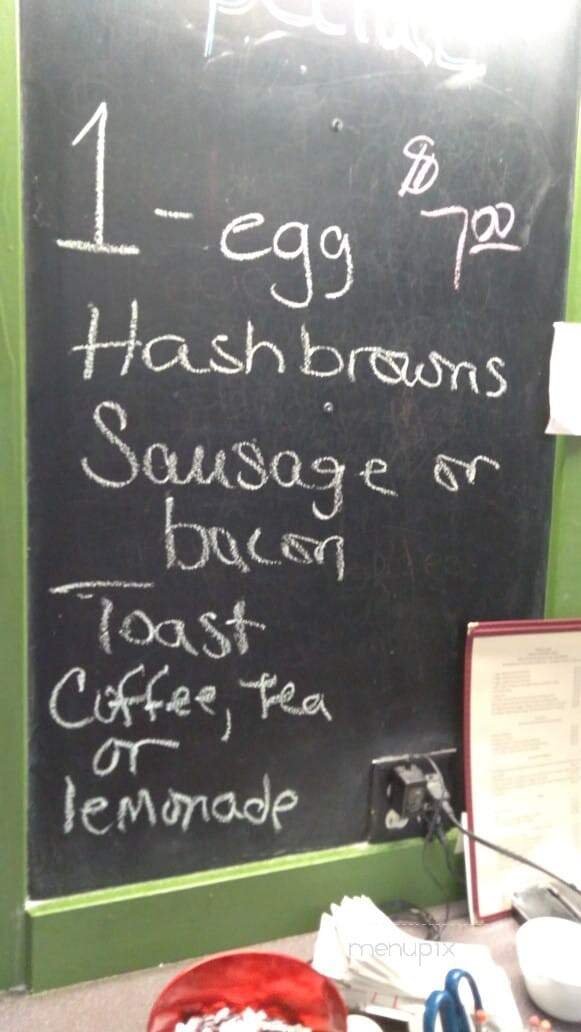 1 - egg $7.00
Hashbrowns
Sausage or
bacon
Toast
Coffee, Tea
or
lemonade
menupix